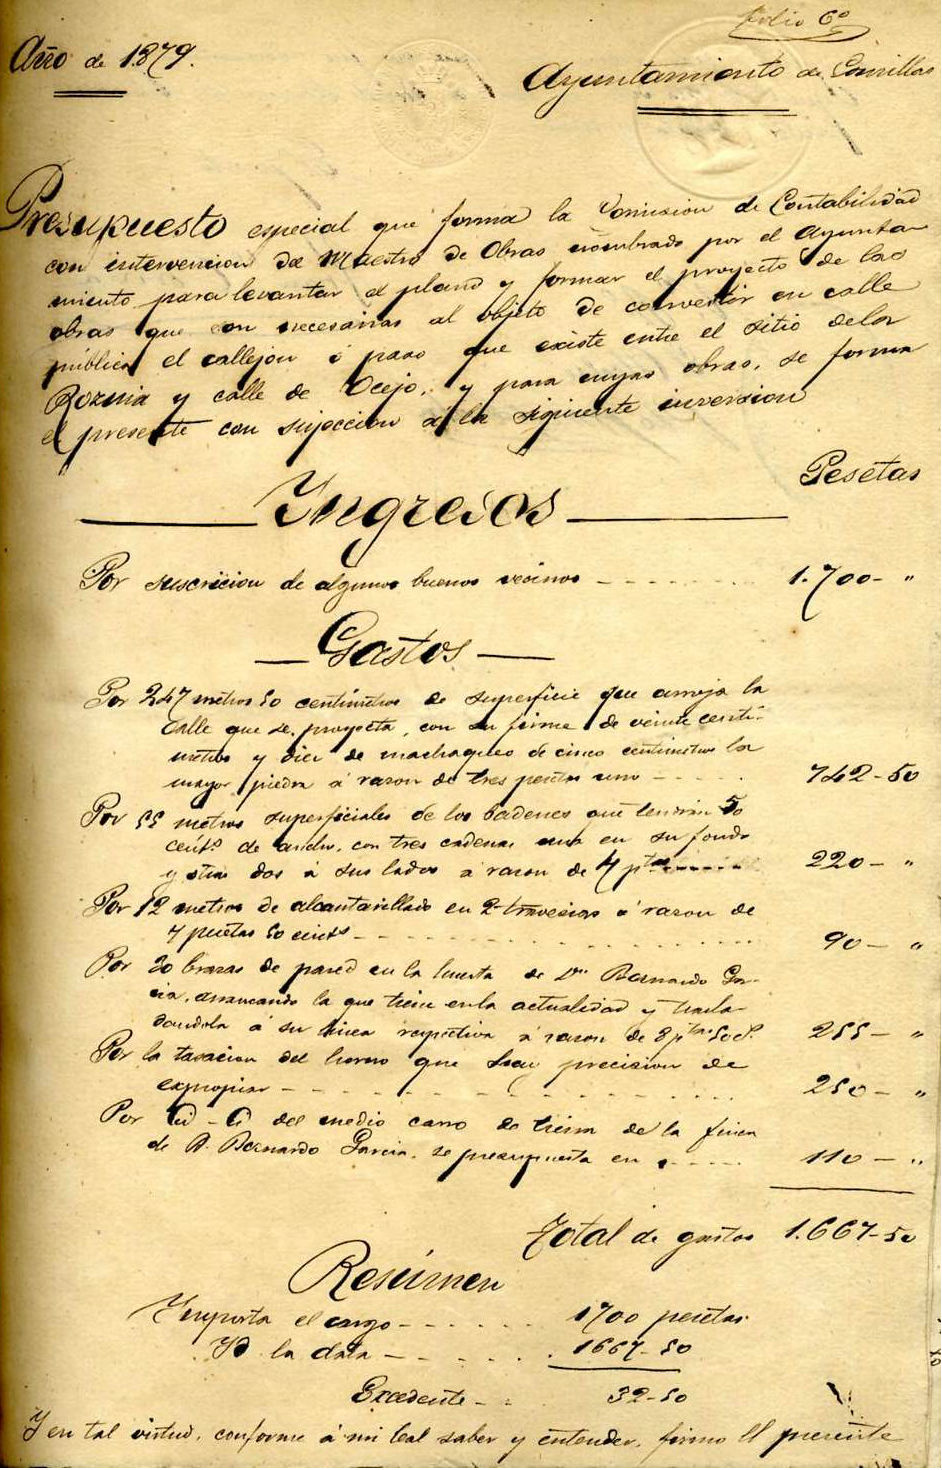 Folio 6º
Año de 1879.
Ayuntamiento de Comillas
Presupuesto especial que forma la Comision de Contabilidad
con intervencion del Maestro de Obras nombrado por el Ayunta-
miento para levantar el plano y formar el proyecto de las
obras que son necesarias al objeto de convertir en calle
pública el callejon ó paso que existe entre el sitio de la
Rozuia y calle de Ocejo, y para cuyas obras, se forma
el presente con sujeccion á la siguiente inversion
Pesetas
Ingresos
Por suscricion de algunos buenos vecinos 1.700- "
Gastos
Por 247 metros 50 centimetros de superficie que arroja la
calle que se proyecta, con su firme de veinte centi-
metros y diez de machaqueo de cinco centimetros la
mayor piedra á razon de tres pesetas uno 742-50
Por 55 metros superficiales de los badenes que tendrán 50
cents de ancho, con tres cadenas una en su fondo
y otras dos á sus lados á razon de 4 ptas 220- "
Por 12 metros de alcantarillado en 2 travesias á razon de
7 pesetas 50 cents 90- "
Por 30 brazas de pared en la huerta de Dn Bernardo Gar-
cia, arrancando la que tiene en la actualidad y trasla-
dandola á su linea respectiva á razon de 8 ptas 50 cs. 255- "
Por la tasacion del horno que hay precision de
expropiar 250- "
Por del medio carro de tierra de la finca
de D. Bernardo Garcia, se presupuesta en 110- "
Total de gastos 1.667-50
Resúmen
Importa el cargo 1700 pesetas
Id la data 1667-50
Excedente 32-50
Y en tal virtud, conforme á mi leal saber y entender, firmo el presente